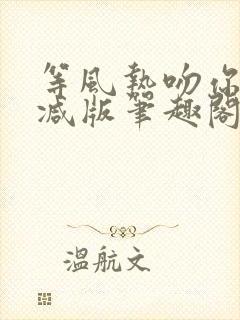 等風熱吻你
減版筆趣閣
溫航文